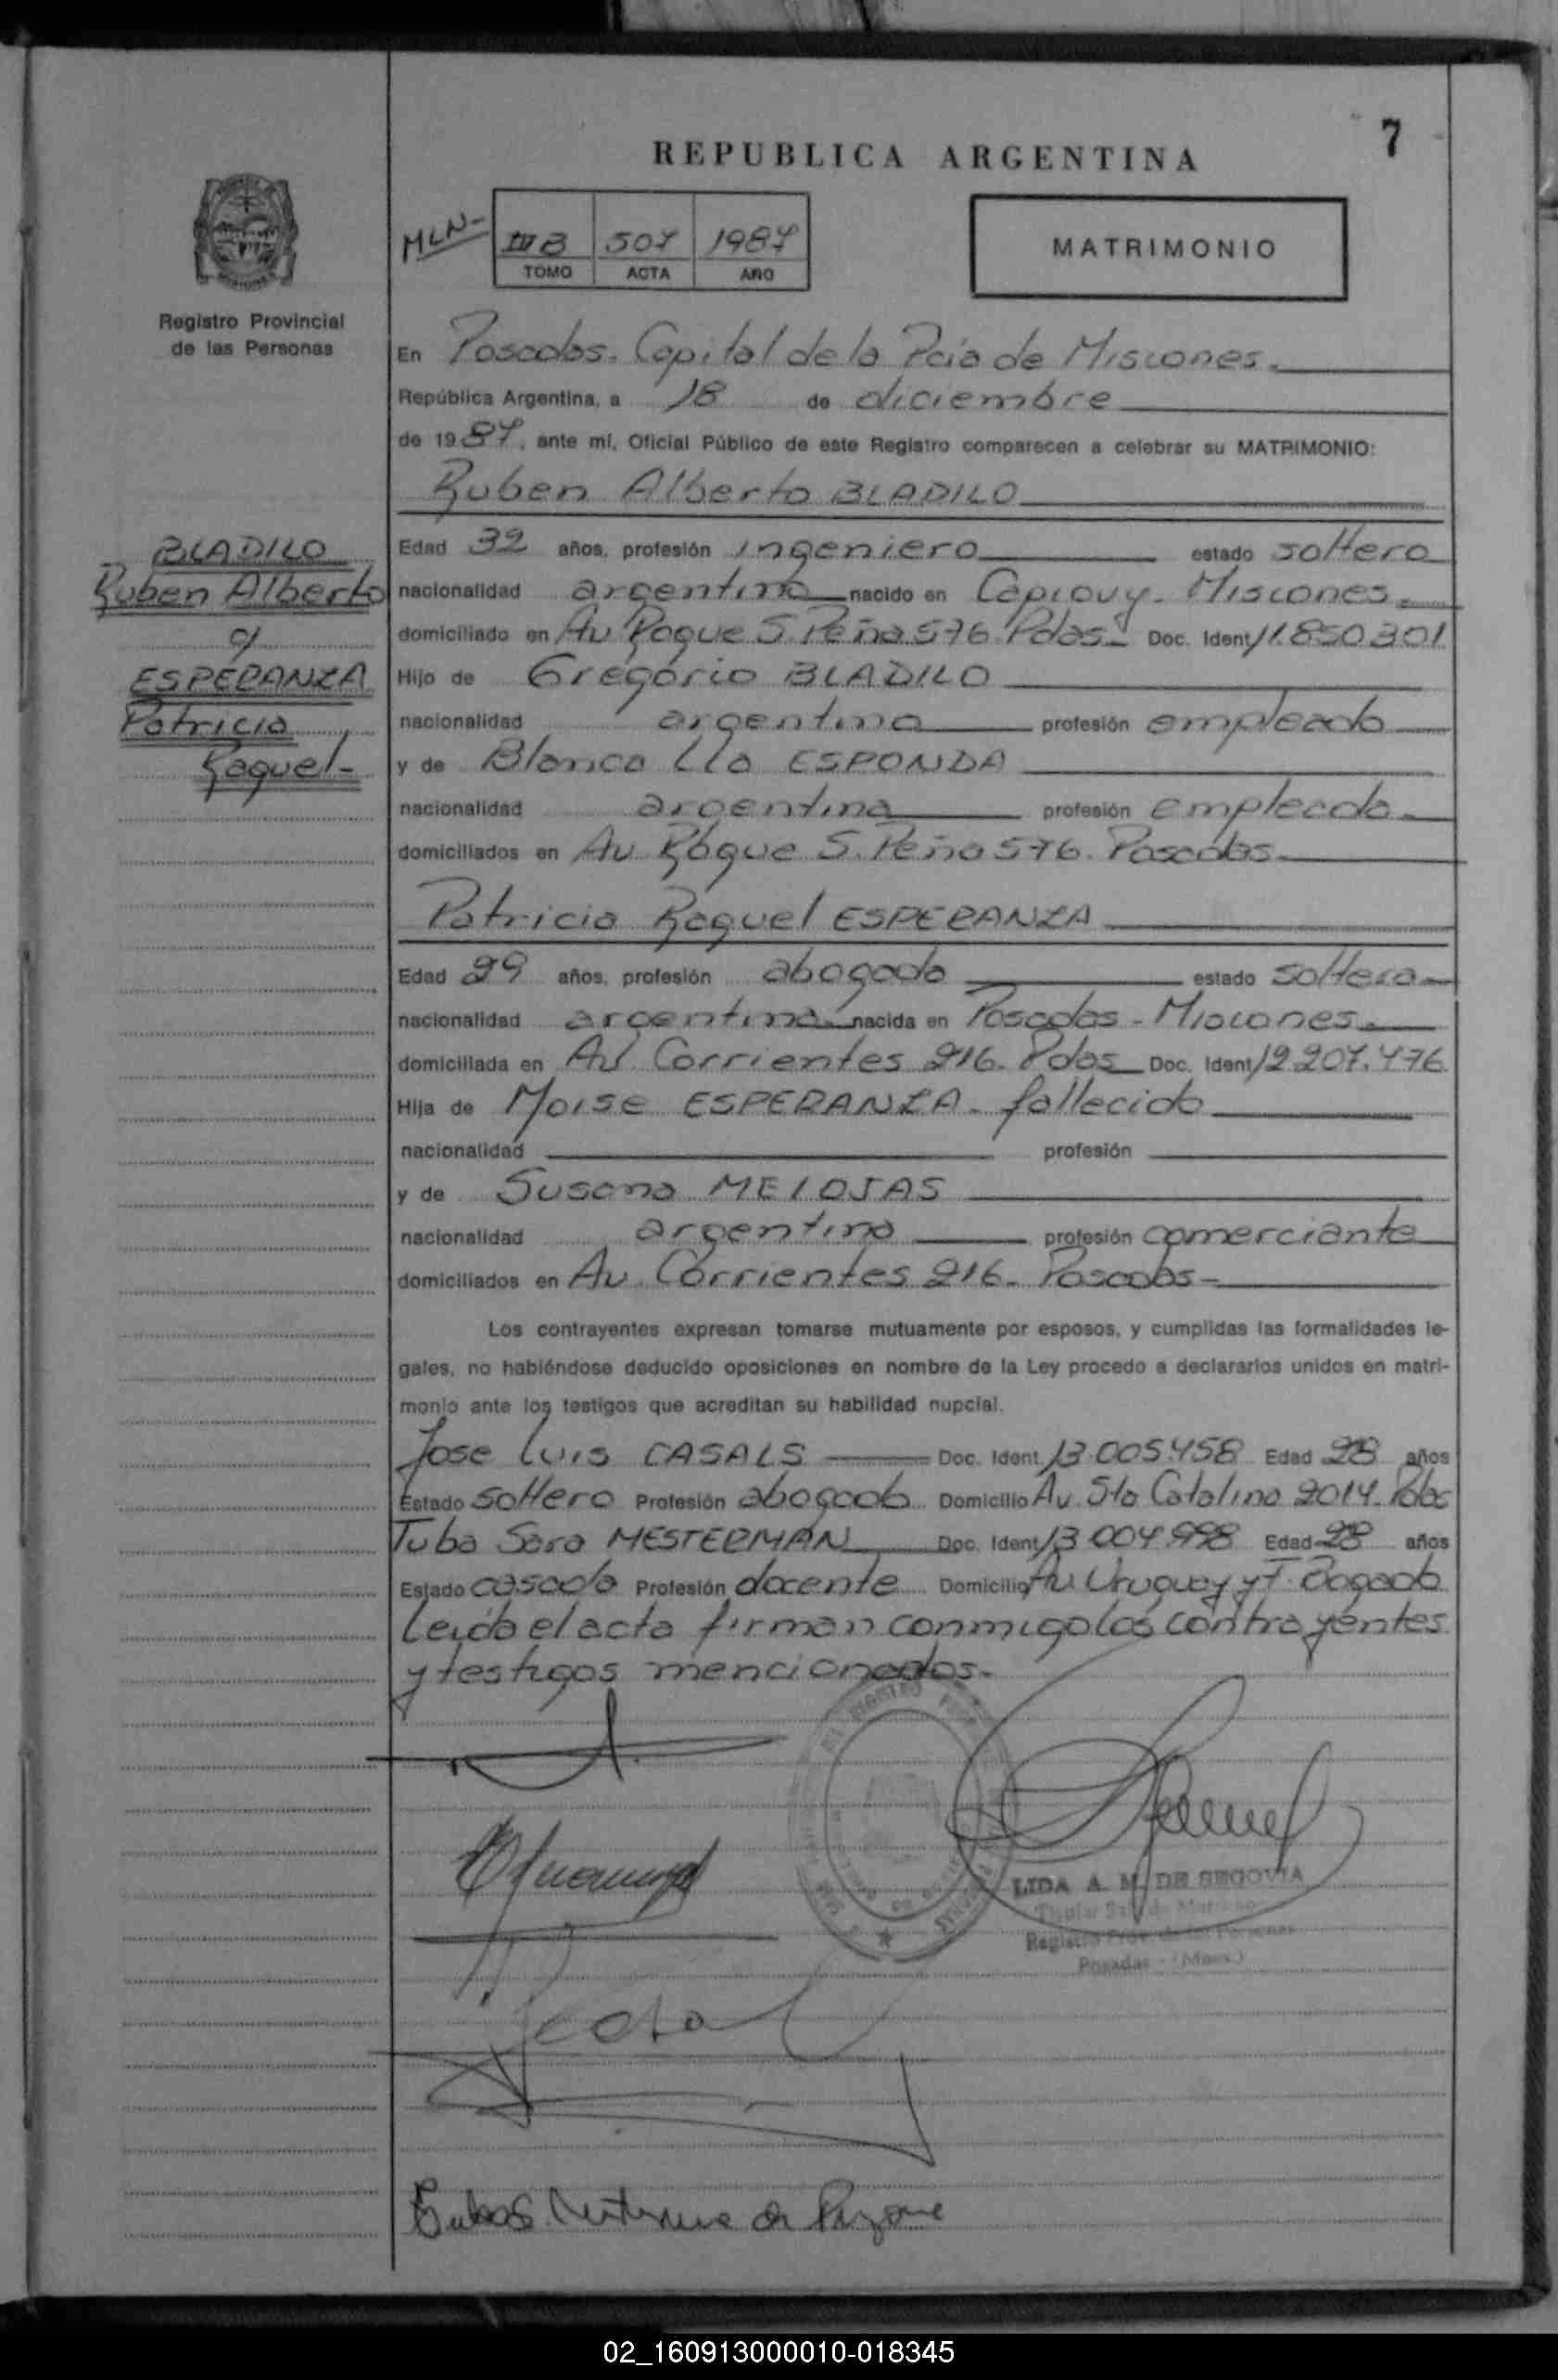 7
REPUBLICA ARGENTINA
MLN-
III B 507 1987
TOMO ACTA AÑO
MATRIMONIO
Registro Provincial
de las Personas
En Posadas. Capital de la Pcia de Misiones.
República Argentina, a 18 de diciembre
de 1987, ante mí, Oficial Público de este Registro comparecen a celebrar su MATRIMONIO:
Ruben Alberto BLADILO
BLADILO
Ruben Alberto
c/
ESPERANZA
Patricia
Raquel-
Edad 32 años, profesión ingeniero estado soltero
nacionalidad argentino nacido en Capiovy. Misiones.
domiciliado en Av Roque S. Peña 576. Pdas. Doc. Ident 11.850.301
Hijo de Gregorio BLADILO
nacionalidad argentino profesión empleado
y de Blanca Lla ESPONDA
nacionalidad argentina profesión empleada.
domiciliados en Av Roque S. Peña 576. Posadas.
Patricia Raquel ESPERANZA
Edad 29 años, profesión abogada estado soltera
nacionalidad argentina nacida en Posadas - Misiones.
domiciliada en Av. Corrientes 216. Pdas Doc. Ident 12.207.476
Hija de Moise ESPERANZA - fallecido
nacionalidad profesión
y de Susana MELOJAS
nacionalidad argentina profesión comerciante
domiciliados en Av. Corrientes 216. Posadas-
Los contrayentes expresan tomarse mutuamente por esposos, y cumplidas las formalidades le-
gales, no habiéndose deducido oposiciones en nombre de la Ley procedo a declararlos unidos en matri-
monio ante los testigos que acreditan su habilidad nupcial.
Jose Luis CASALS Doc. Ident. 13.005.458 Edad 28 años
Estado soltero Profesión abogado Domicilio Av. Sta Catalina 2014. Pdas
Tuba Sara MESTERMAN Doc. Ident 13.004.998 Edad 28 años
Estado casada Profesión docente Domicilio Av Uruguay y T. Bogado
Leida el acta firman conmigo los contrayentes
y testigos mencionados.
LIDA A. M. DE SEGOVIA
Titular
Registro Prov. de las Personas
Posadas - (Mnes.)
02_160913000010-018345